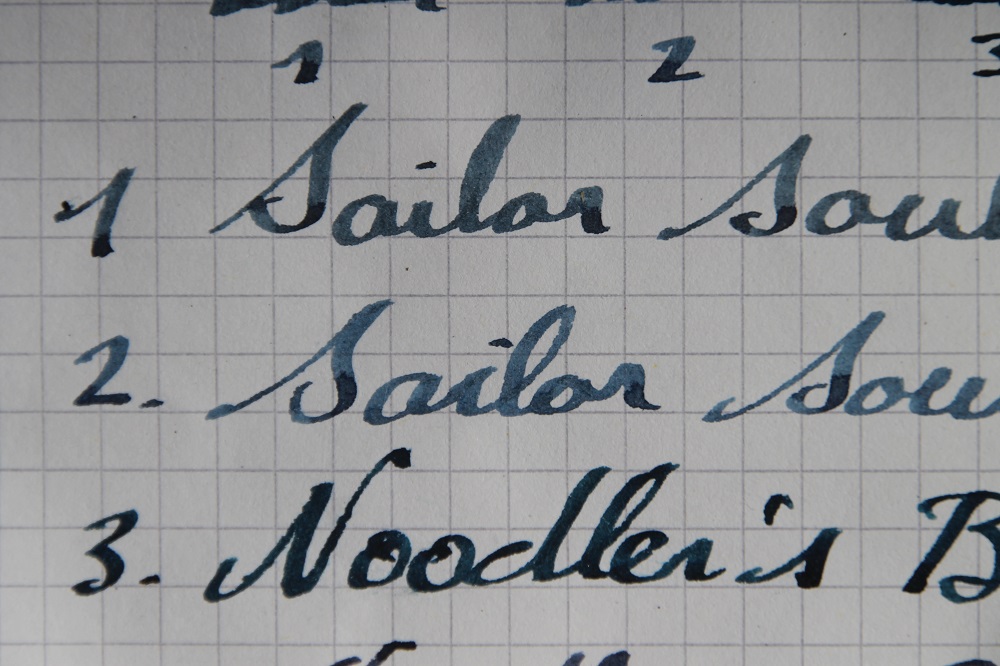 1 2 3
1 Sailor Sou
2. Sailor Sou
3. Noodler's B